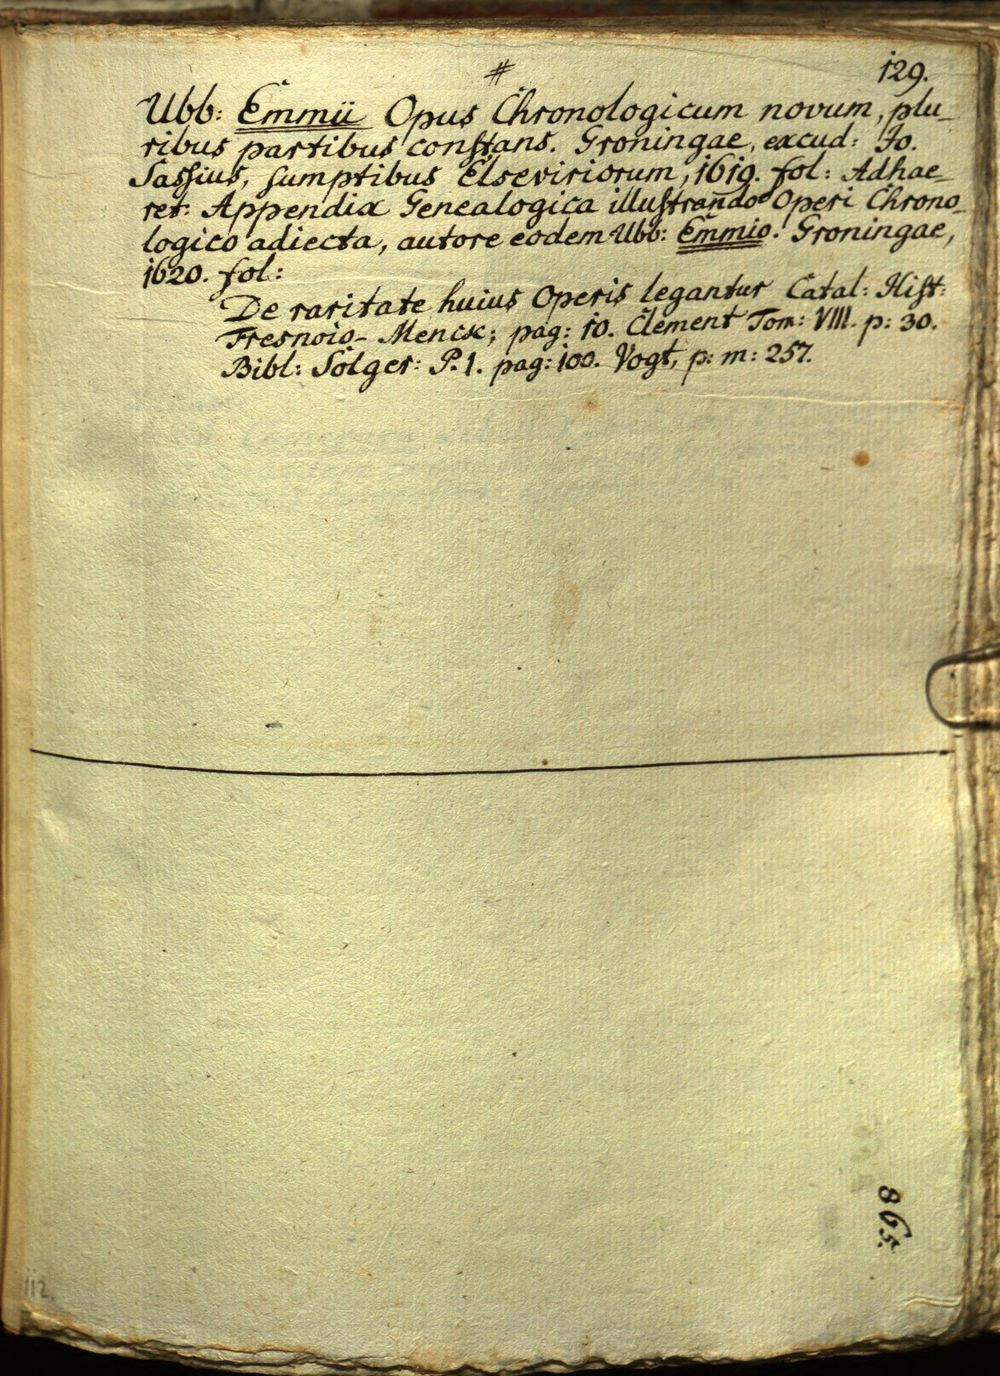 #
129.
Ubb: Emmii Opus Chronologicum novum, plu_
ribus partibus constans. Groningae, excud: Jo.
Sassius, sumptibus Elseviriorum, 1619. fol: Adhae_
ret: Appendix Genealogica illustrando Operi Chrono_
logico adiecta, autore eodem Ubb: Emmio. Groningae,
1620. fol:
De raritate huius Operis legantur Catal: Hist:
Fresnoio- Menck; pag: 10. Clement Tom: VIII. p: 30.
Bibl: Solger: P. 1. pag: 100. Vogt, p: m: 257.
865.
112.